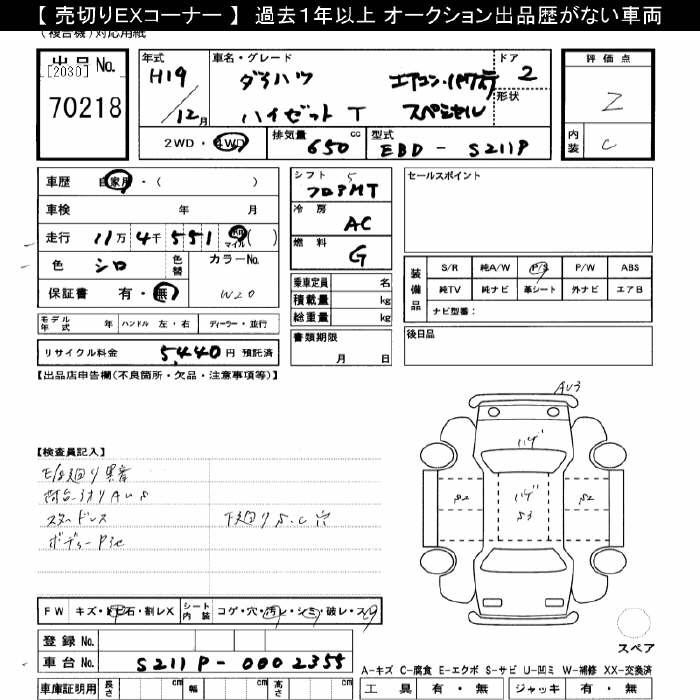 【 売切りEXコーナー 】 過去1年以上 オークション出品歴がない車両
(複合機)対応用紙
出品 No.
[2030]
70218
年式
H19
12月
車名・グレード
ダイハツ エアコン・パワステ
ハイゼット T スペシャル
ドア
2
形状
評価点
2WD・4WD
排気量 650 cc
型式 EBD - S211P
内装 C
車歴 自家用・( )
車検 年 月
走行 11万 4千 5 5 1 9 マイル( )
色 シロ 色替
カラーNo.
W20
保証書 有・無
シフト 5
フロアMT
冷房 AC
燃料 G
乗車定員 名
積載量 kg
総重量 kg
書類期限
月 日
セールスポイント
装備品
S/R 純A/W P/S P/W ABS
純TV 純ナビ 革シート 外ナビ エアB
ナビ型番:
後日品
モデル年式 年 ハンドル 左・右 ディーラー・並行
リサイクル料金 5,440 円 預託済
【出品店申告欄(不良箇所・欠品・注意事項等)】
【検査員記入】
スタッドレス
下廻りS.C穴
AU3
ハゲ
S2 ハゲ S2
S3
FW キズ・飛石・割レX シート内装 コゲ・穴・汚レ・シミ・破レ・スレ
登録 No.
車台 No. S211P-0002355
スペア
A-キズ C-腐食 E-エクボ S-サビ U-凹ミ W-補修 XX-交換済
車庫証明用 長さ cm 幅 cm 高さ cm
工具 有・無 ジャッキ 有・無